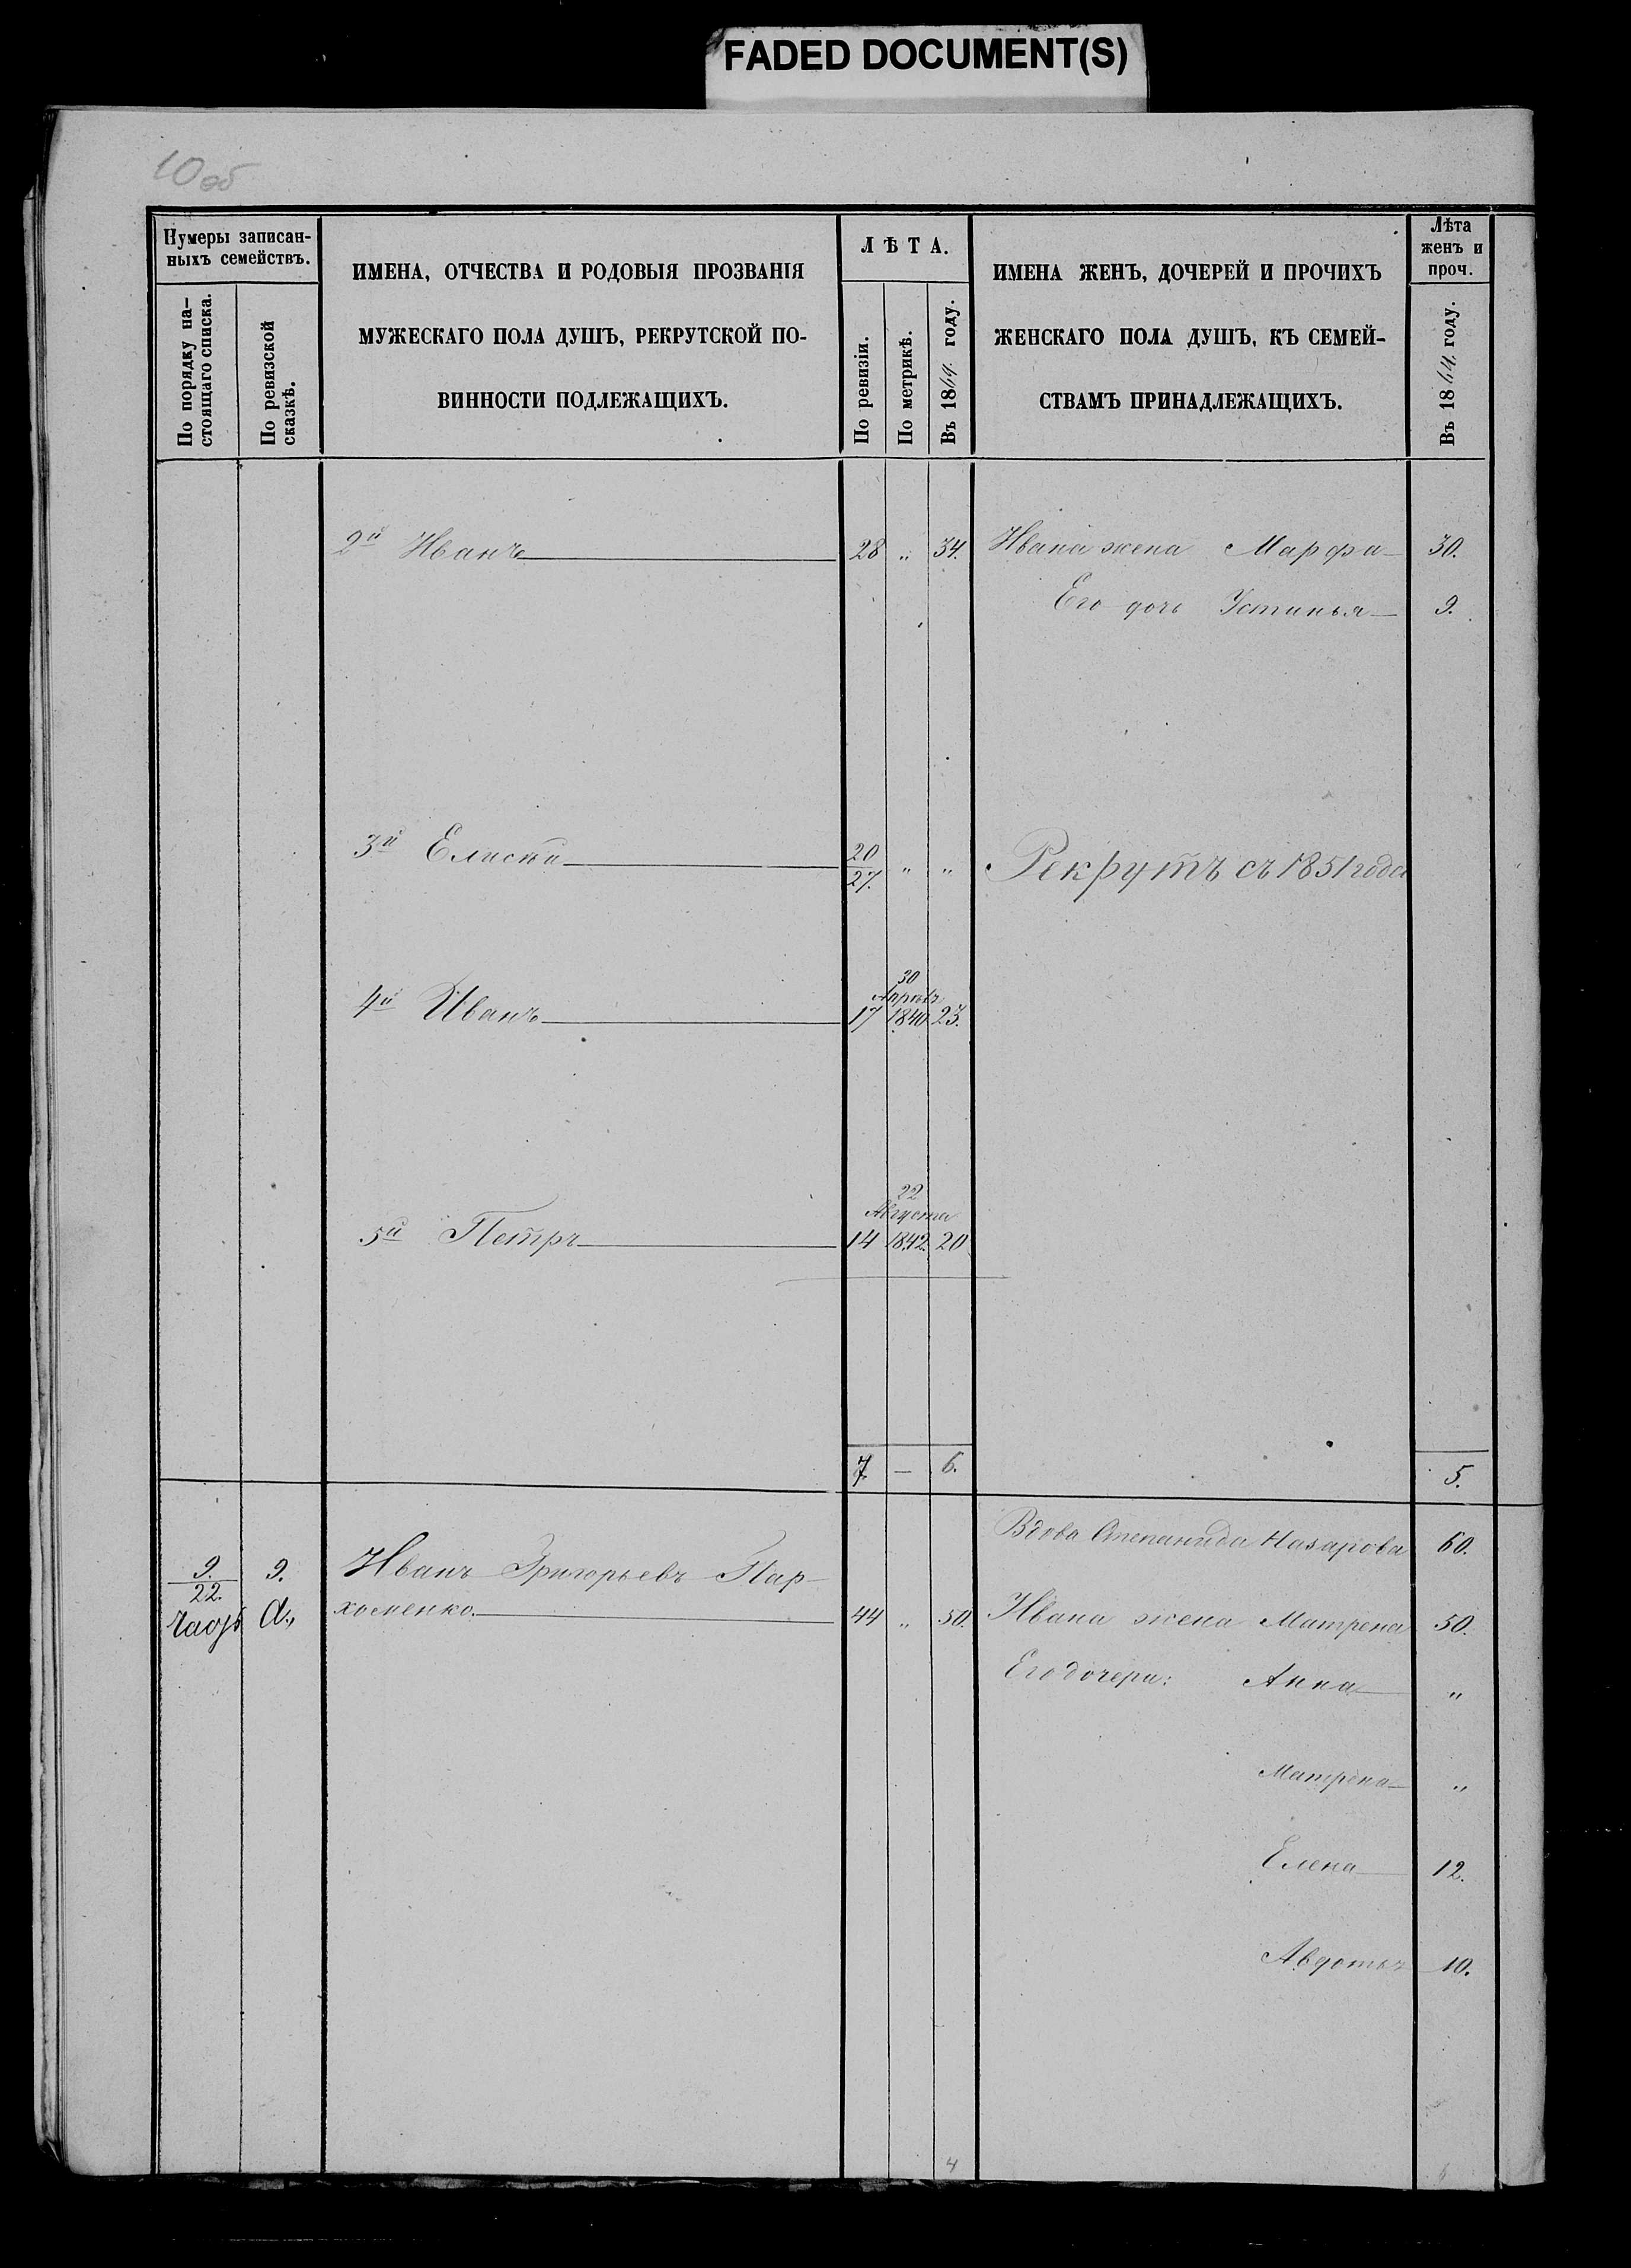 FADED DOCUMENT(S)
10 об
Нумеры записан-
ныхъ семействъ.
По порядку на-
стоящаго списка.
По ревизской
сказкѣ.
ИМЕНА, ОТЧЕСТВА И РОДОВЫЯ ПРОЗВАНІЯ
МУЖЕСКАГО ПОЛА ДУШЪ, РЕКРУТСКОЙ ПО-
ВИННОСТИ ПОДЛЕЖАЩИХЪ.
ЛѢТА.
По ревизіи.
По метрикѣ.
Въ 1864 году.
ИМЕНА ЖЕНЪ, ДОЧЕРЕЙ И ПРОЧИХЪ
ЖЕНСКАГО ПОЛА ДУШЪ, КЪ СЕМЕЙ-
СТВАМЪ ПРИНАДЛЕЖАЩИХЪ.
Лѣта
женъ и
проч.
Въ 1864 году.
2й Иванъ 28 „ 34. Ивана жена Марфа 30.
Его дочь Устинья 9.
3й Елисѣй 20 „ „ Рекрутъ съ 1851 года
27.
30
Апрѣль
4й Иванъ 17 1840 23.
22
Августа
5й Петръ 14 1842. 20
7. — 6. 5.
Вдова Степанида Назарова 60.
9. 9. Иванъ Григорьевъ Пар-
22.
хоменко. 44 „ 50. Ивана жена Матрена 50.
Его дочери: Анна „
Матрена „
Елена 12.
Авдотья 10.
4